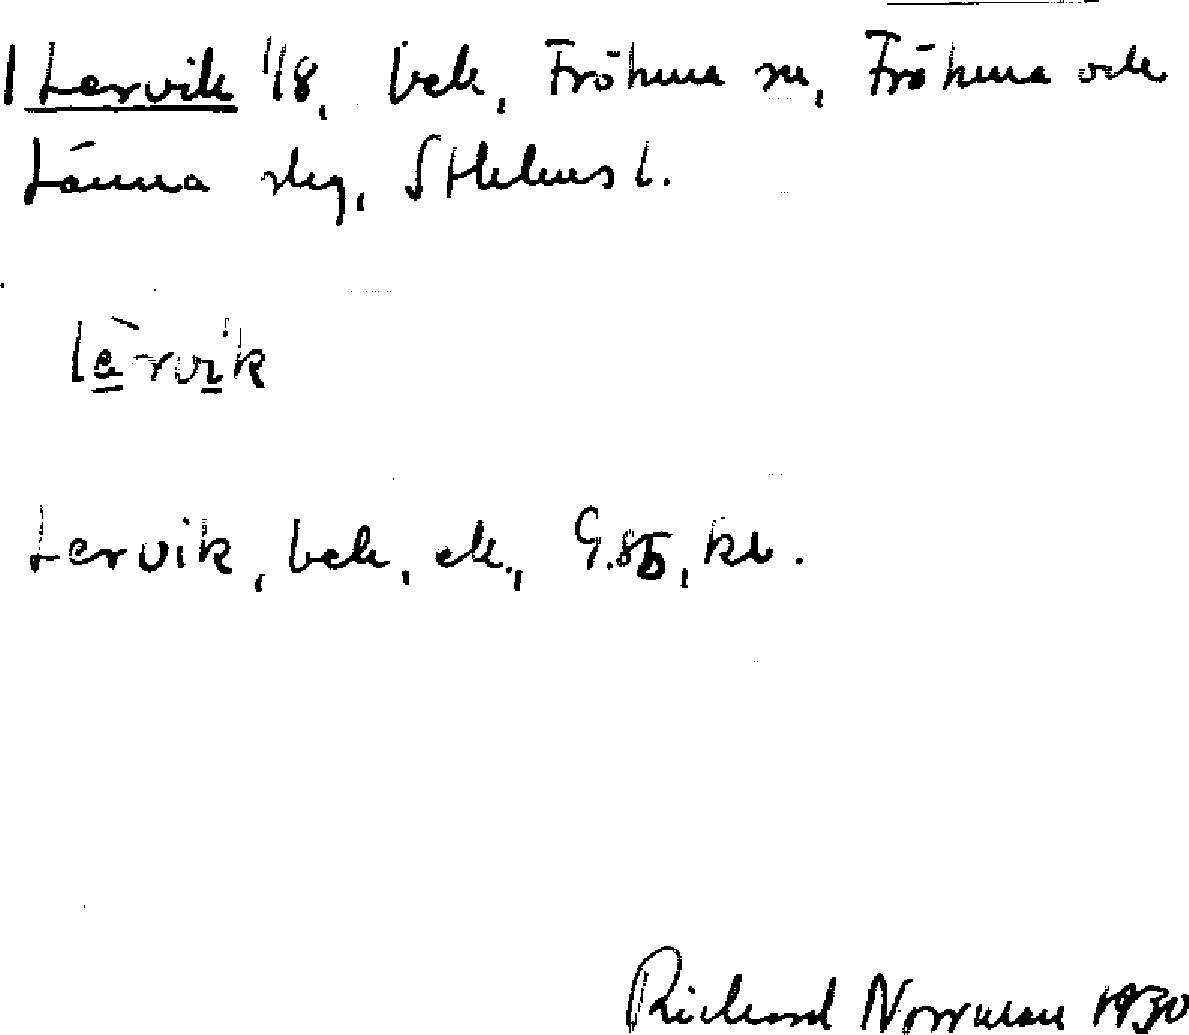 Lervik 1/8, beb., Frötuna sn, Frötuna och
Länna slg, Sthlms l.
lèrvi'k
Lervik, beb., ek., G.85, kb.
Richard Norrman 1930